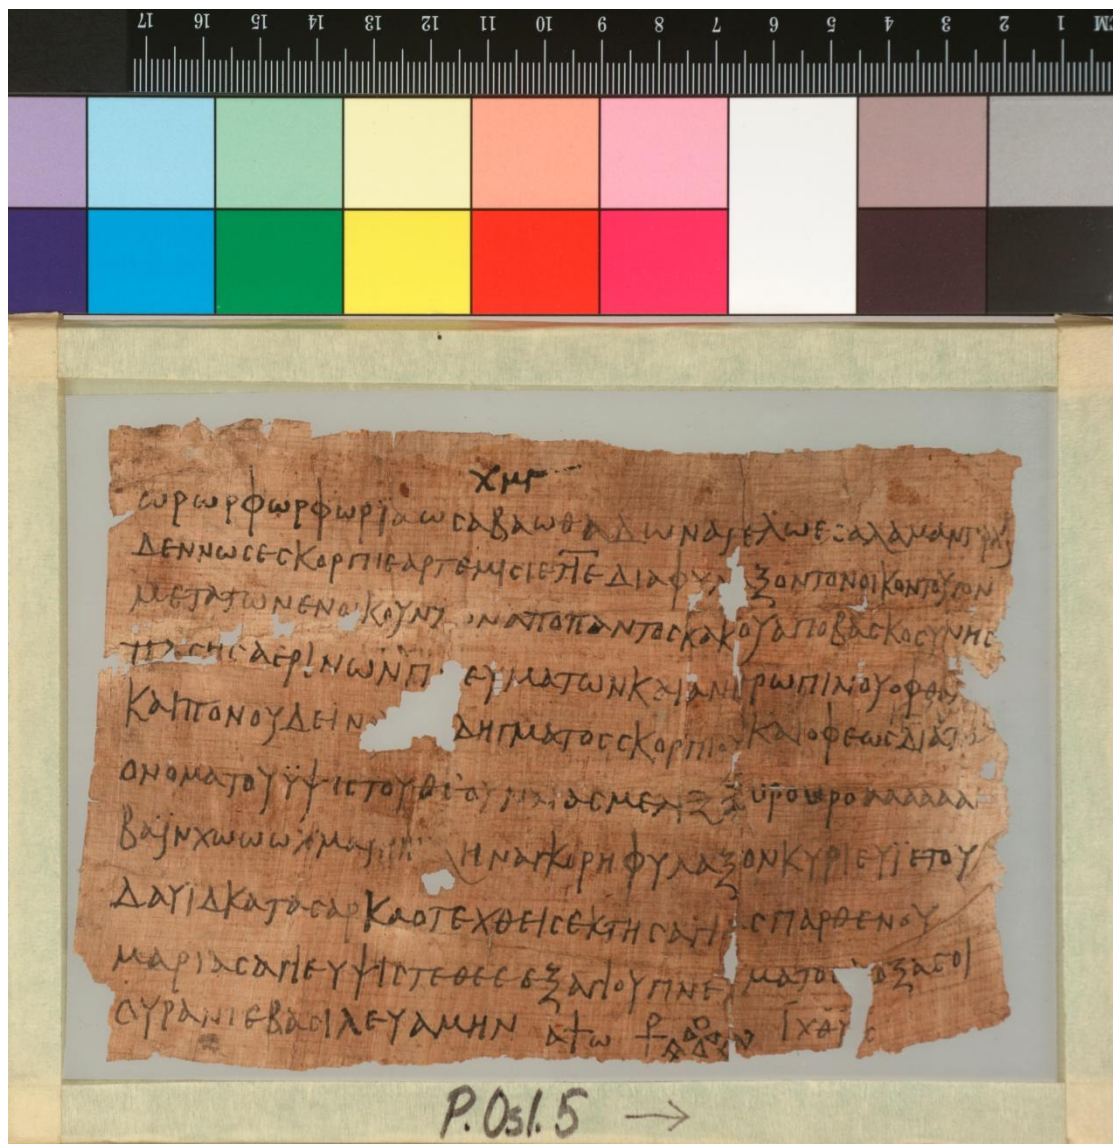 17 16 15 14 13 12 11 10 9 8 7 6 5 4 3 2 1 CM
χμγ
ωρωρφωρφωρϊαωσαβαωθαδωναιελωεσαλαμανταρχι
δεννωσεσκορπιεαρτεμισιεπ̅ε̅διαφυλαξοντονοικοντουτον
μετατωνενοικουντωναποπαντοσκακουαποβασκοσυνησ
πασησαερινωνπνευματωνκαιανθρωπινουοφθαλ
καιπονουδεινουδηγματοσσκορπιουκαιοφεωσδιατο
ονοματουϋψιστουθεουναιασμελξξυροωροαααααα
βαϊνχωωωχμαρηναγκορηφυλαξονκυριευϊετου
δαυιδκατασαρκαοτεχθεισεκτησαγιασπαρθενου
μαριασαγιευψιστεθεεεξαγιουπνευματοσδοξασοι
ουρανιεβασιλευαμην α†ω ϊχθυσ
P.Osl.5 →